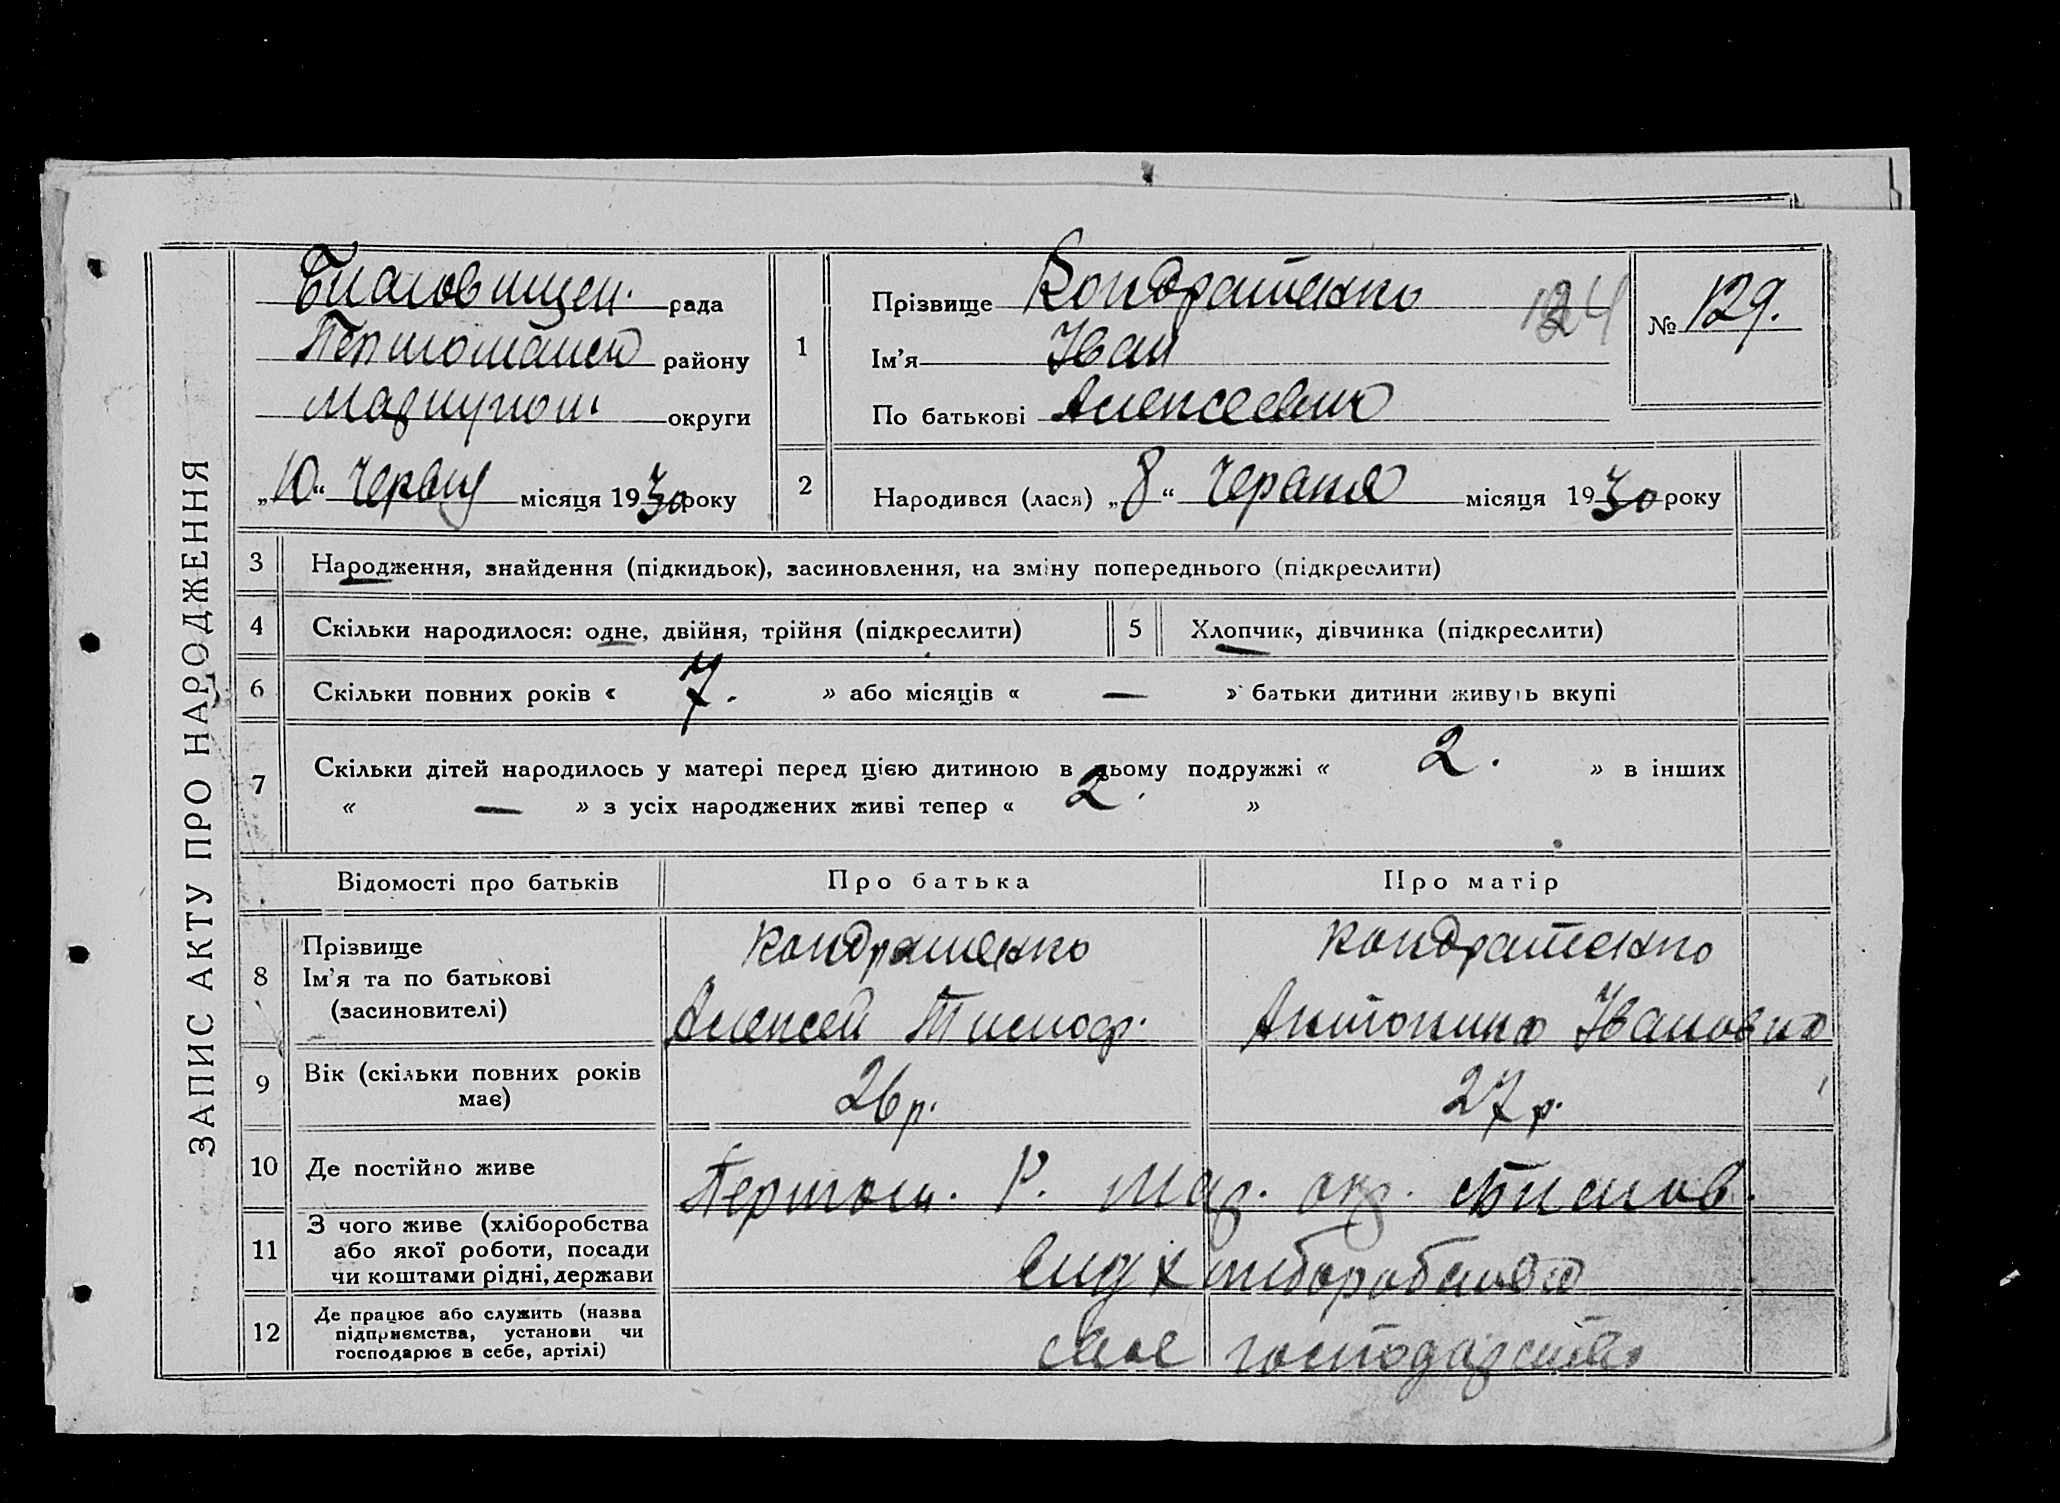 ЗАПИС АКТУ ПРО НАРОДЖЕННЯ
рада
району
округи
„10“ Червня місяця 1930 року
1
Прізвище Кондратенко
Ім'я Іван
По батькові Алексеевич
124
№ 129.
2
Народився (лася) „8“ Червня місяця 1930 року
3
Народження, знайдення (підкидьок), засиновлення, на зміну попереднього (підкреслити)
4
Скільки народилося: одне, двійня, трійня (підкреслити)
5
Хлопчик, дівчинка (підкреслити)
6
Скільки повних років « 7. » або місяців « — » батьки дитини живуть вкупі
7
Скільки дітей народилось у матері перед цією дитиною в цьому подружжі « 2. » в інших
« — » з усіх народжених живі тепер « 2. »
Відомості про батьків
Про батька
Про матір
8
Прізвище
Ім'я та по батькові
(засиновителі)
Кондратенко
Алексей Тимоф.
Кондратенко
Антонина Ивановна
9
Вік (скільки повних років
має)
26 р.
27 р.
10
Де постійно живе
Першом. Р. Мар. окр.
11
З чого живе (хліборобства
або якої роботи, посади
чи коштами рідні, держави
від хліборобства
12
Де працює або служить (назва
підприємства, установи чи
господарює в себе, артілі)
своє господарство